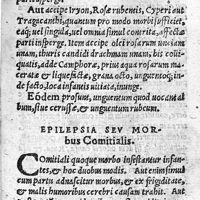 Aut accipe lryon, Rosæ rubentis, Cyperi aut
Tragacanthi, quantum pro modo morbi sufficiet,
eaq; uel singula, uel omnia simul conterito, affectæ
parti inspergito. Item accipe olei rosarum unciam
unam, thuris candidi drachmam unam, his colli-
quatis, adde Camphoræ, prius aqua rosarum ma-
ceratæ & infractæ, grana octo, unguentoq; in-
de facto, loca infantis uitiata, inungito.
Eôdem prosunt, unguentum quod uocant al
bum, siue cerussæ, & unguentum rubeum.
EPILEPSIA SEV MOR-
bus Comitialis.
Comitiali quoque morbo infestantur infan-
tes, & hoc duobus modis. Aut enim simul
cum partu adnascitur morbus, & ex frigiditate,
& malis humoribus cerebri causam trahit. Aut